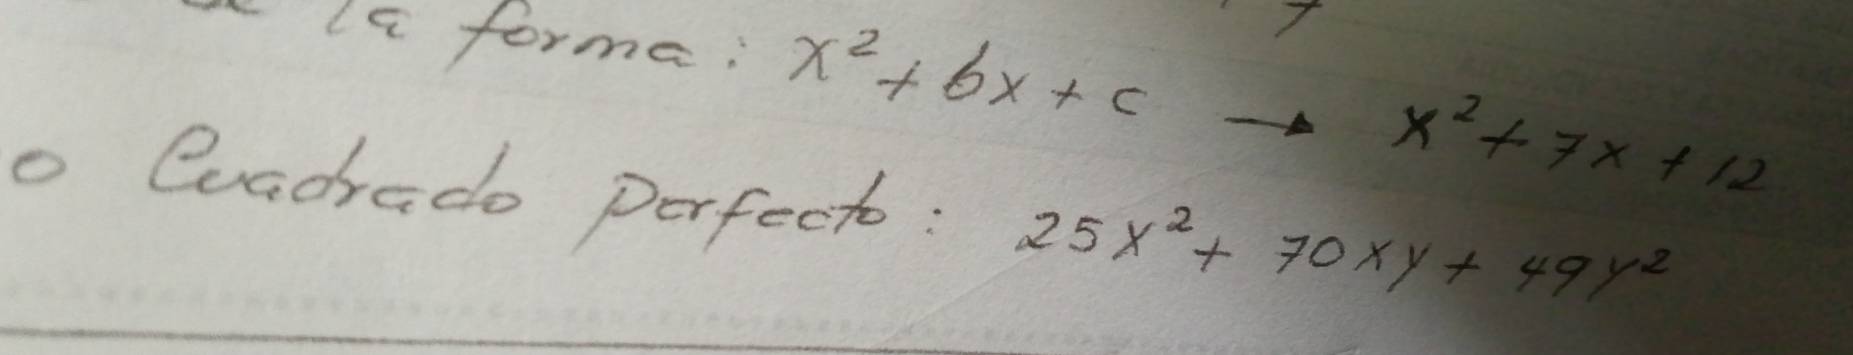 la forma: x² + bx + c → x² + 7x + 12
o Cuadrado Perfecto: 25x² + 70xy + 49y²